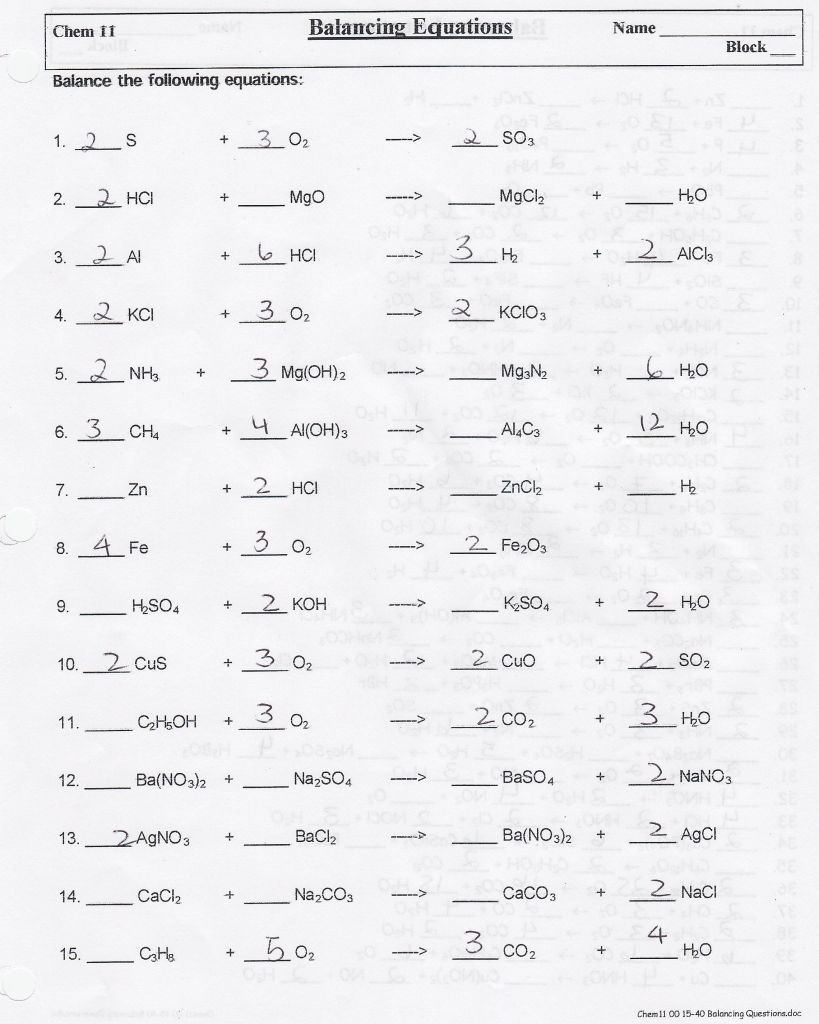 Chem 11 Balancing Equations Name ________
Block ___
Balance the following equations:
1. 2 S + 3 O₂ ----> 2 SO₃
2. 2 HCl + ____ MgO ----> ____ MgCl₂ + ____ H₂O
3. 2 Al + 6 HCl ----> 3 H₂ + 2 AlCl₃
4. 2 KCl + 3 O₂ ----> 2 KClO₃
5. 2 NH₃ + 3 Mg(OH)₂ ----> ____ Mg₃N₂ + 6 H₂O
6. 3 CH₄ + 4 Al(OH)₃ ----> ____ Al₄C₃ + 12 H₂O
7. ____ Zn + 2 HCl ----> ____ ZnCl₂ + ____ H₂
8. 4 Fe + 3 O₂ ----> 2 Fe₂O₃
9. ____ H₂SO₄ + 2 KOH ----> ____ K₂SO₄ + 2 H₂O
10. 2 CuS + 3 O₂ ----> 2 CuO + 2 SO₂
11. ____ C₂H₅OH + 3 O₂ ----> 2 CO₂ + 3 H₂O
12. ____ Ba(NO₃)₂ + ____ Na₂SO₄ ----> ____ BaSO₄ + 2 NaNO₃
13. 2 AgNO₃ + ____ BaCl₂ ----> ____ Ba(NO₃)₂ + 2 AgCl
14. ____ CaCl₂ + ____ Na₂CO₃ ----> ____ CaCO₃ + 2 NaCl
15. ____ C₃H₈ + 5 O₂ ----> 3 CO₂ + 4 H₂O
Chem11 00 15-40 Balancing Questions.doc